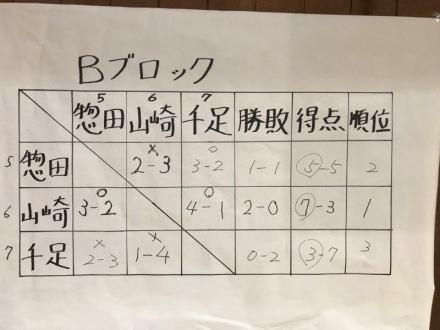 Bブロック
5 6 7
惣田 山崎 千足 勝敗 得点 順位
5 惣田 × 2-3 ○ 3-2 1-1 5-5 2
6 山崎 ○ 3-2 ○ 4-1 2-0 7-3 1
7 千足 × 2-3 × 1-4 0-2 3-7 3